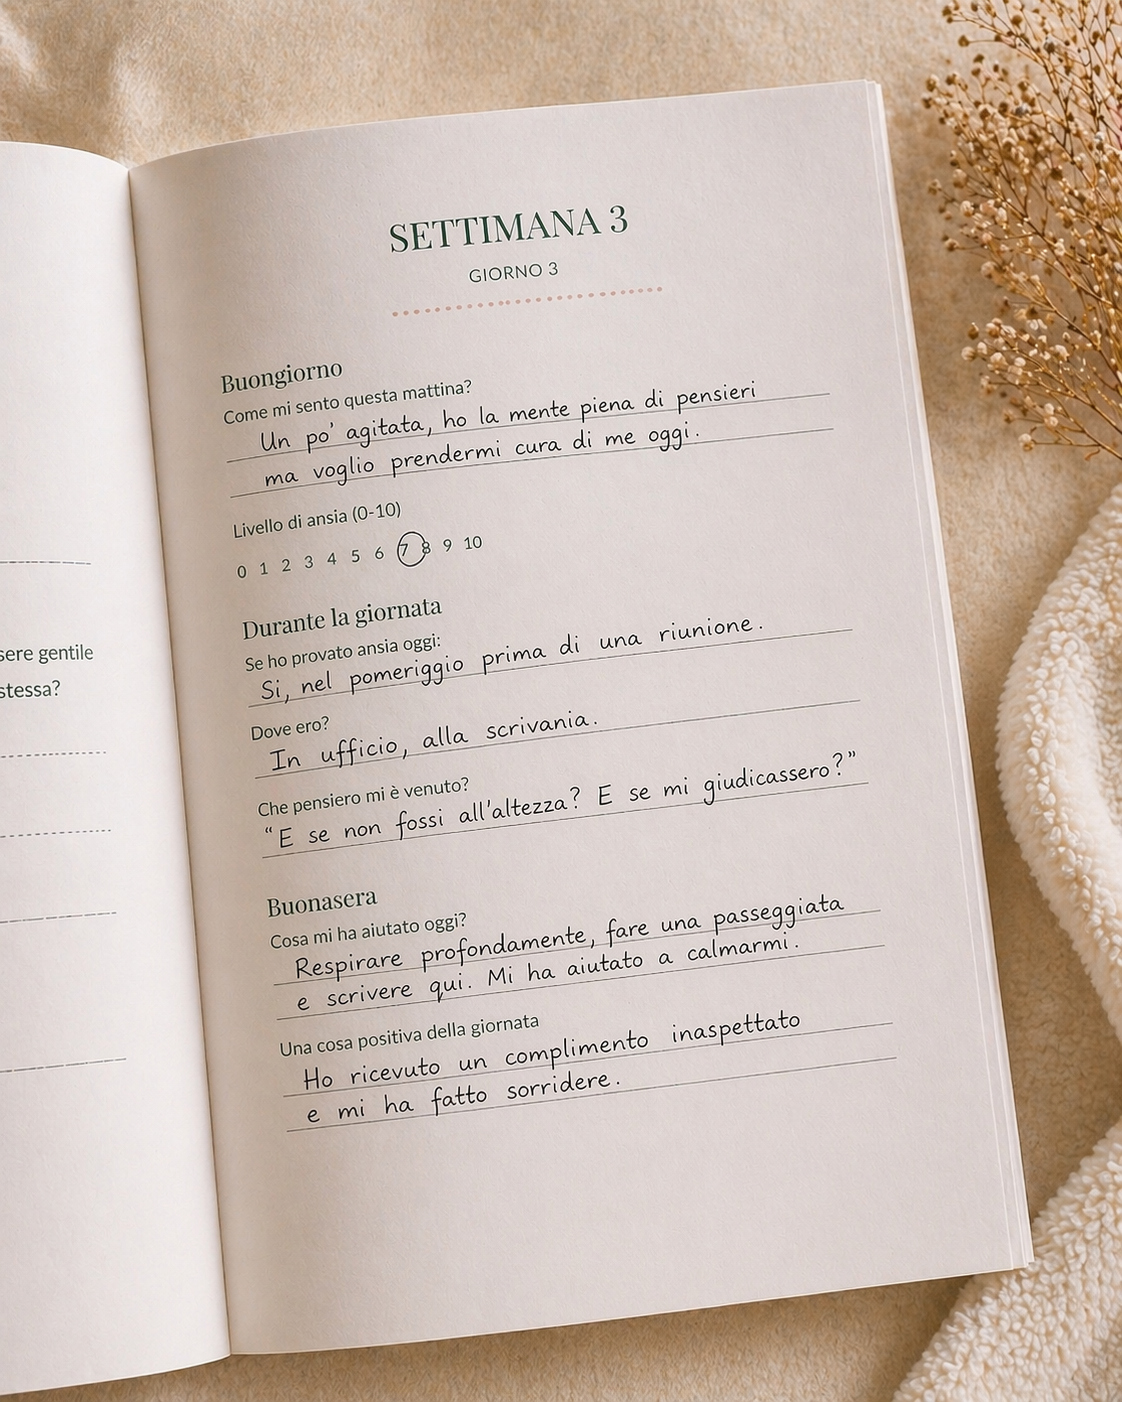 sere gentile
stessa?
SETTIMANA 3
GIORNO 3
Buongiorno
Come mi sento questa mattina?
Un po' agitata, ho la mente piena di pensieri
ma voglio prendermi cura di me oggi.
Livello di ansia (0-10)
0 1 2 3 4 5 6 7 8 9 10
Durante la giornata
Se ho provato ansia oggi:
Si, nel pomeriggio prima di una riunione.
Dove ero?
In ufficio, alla scrivania.
Che pensiero mi è venuto?
“E se non fossi all'altezza? E se mi giudicassero?”
Buonasera
Cosa mi ha aiutato oggi?
Respirare profondamente, fare una passeggiata
e scrivere qui. Mi ha aiutato a calmarmi.
Una cosa positiva della giornata
Ho ricevuto un complimento inaspettato
e mi ha fatto sorridere.